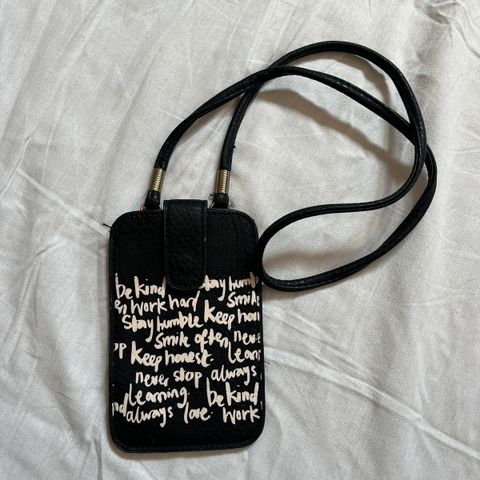 be kind Stay humb
en work hard Smile
Stay humble Keep hon
Smile often, neve
op Keep honest. learn
never stop always
learning. be kind
nd always love work